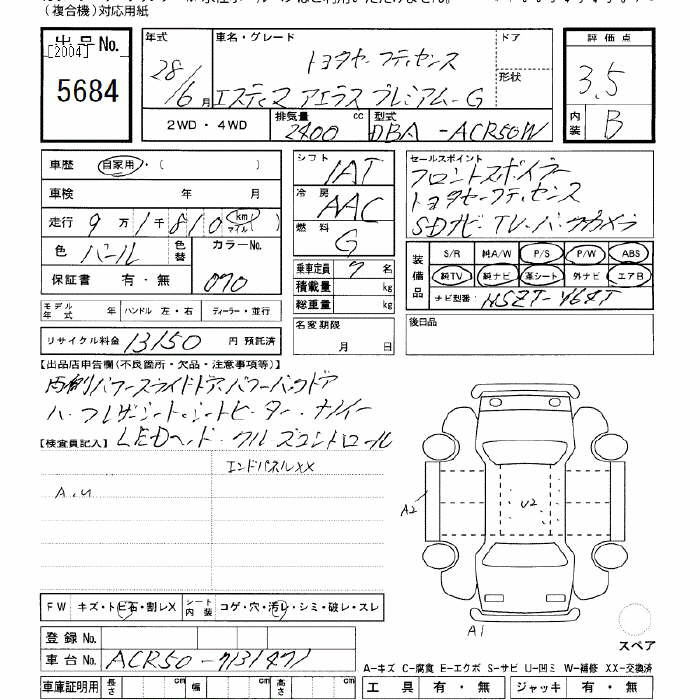 (複合機)対応用紙
出品No.
[2004]
5684
年式
28/6月
車名・グレード
トヨタセーフティセンス
エスティマ アエラス プレミアム-G
ドア
形状
2WD・4WD
排気量
2400
cc
型式
DBA-ACR50W
評価点
3.5
内装
B
車歴 自家用・( )
車検 年 月
走行 9万1千810 km マイル
色 パール 色替 カラーNo.
保証書 有・無 070
モデル年式 年 ハンドル 左・右 ディーラー・並行
リサイクル料金 13150 円 預託済
シフト
IAT
冷房
AAC
燃料
G
乗車定員 7 名
積載量 kg
総重量 kg
名変期限
月 日
セールスポイント
フロントスポイラー
トヨタセーフティセンス
SDナビ-TV-バックカメラ
装備品
S/R 純A/W P/S P/W ABS
純TV 純ナビ 革シート 外ナビ エアB
ナビ型番: NSZT-Y68T
後日品
【出品店申告欄(不良箇所・欠品・注意事項等)】
両側パワースライドドア、パワーバックドア
ハーフレザーシート、シートヒーター・ナノイー
LEDヘッド・クルーズコントロール
【検査員記入】
エンドパネルXX
A.U
A2
U2
A1
FW キズ・トビ石・割レX
シート内装 コゲ・穴・汚レ・シミ・破レ・スレ
登録No.
車台No. ACR50-7131471
車庫証明用 長さ cm 幅 cm 高さ cm
スペア
A-キズ C-腐食 E-エクボ S-サビ U-凹ミ W-補修 XX-交換済
工具 有・無 ジャッキ 有・無